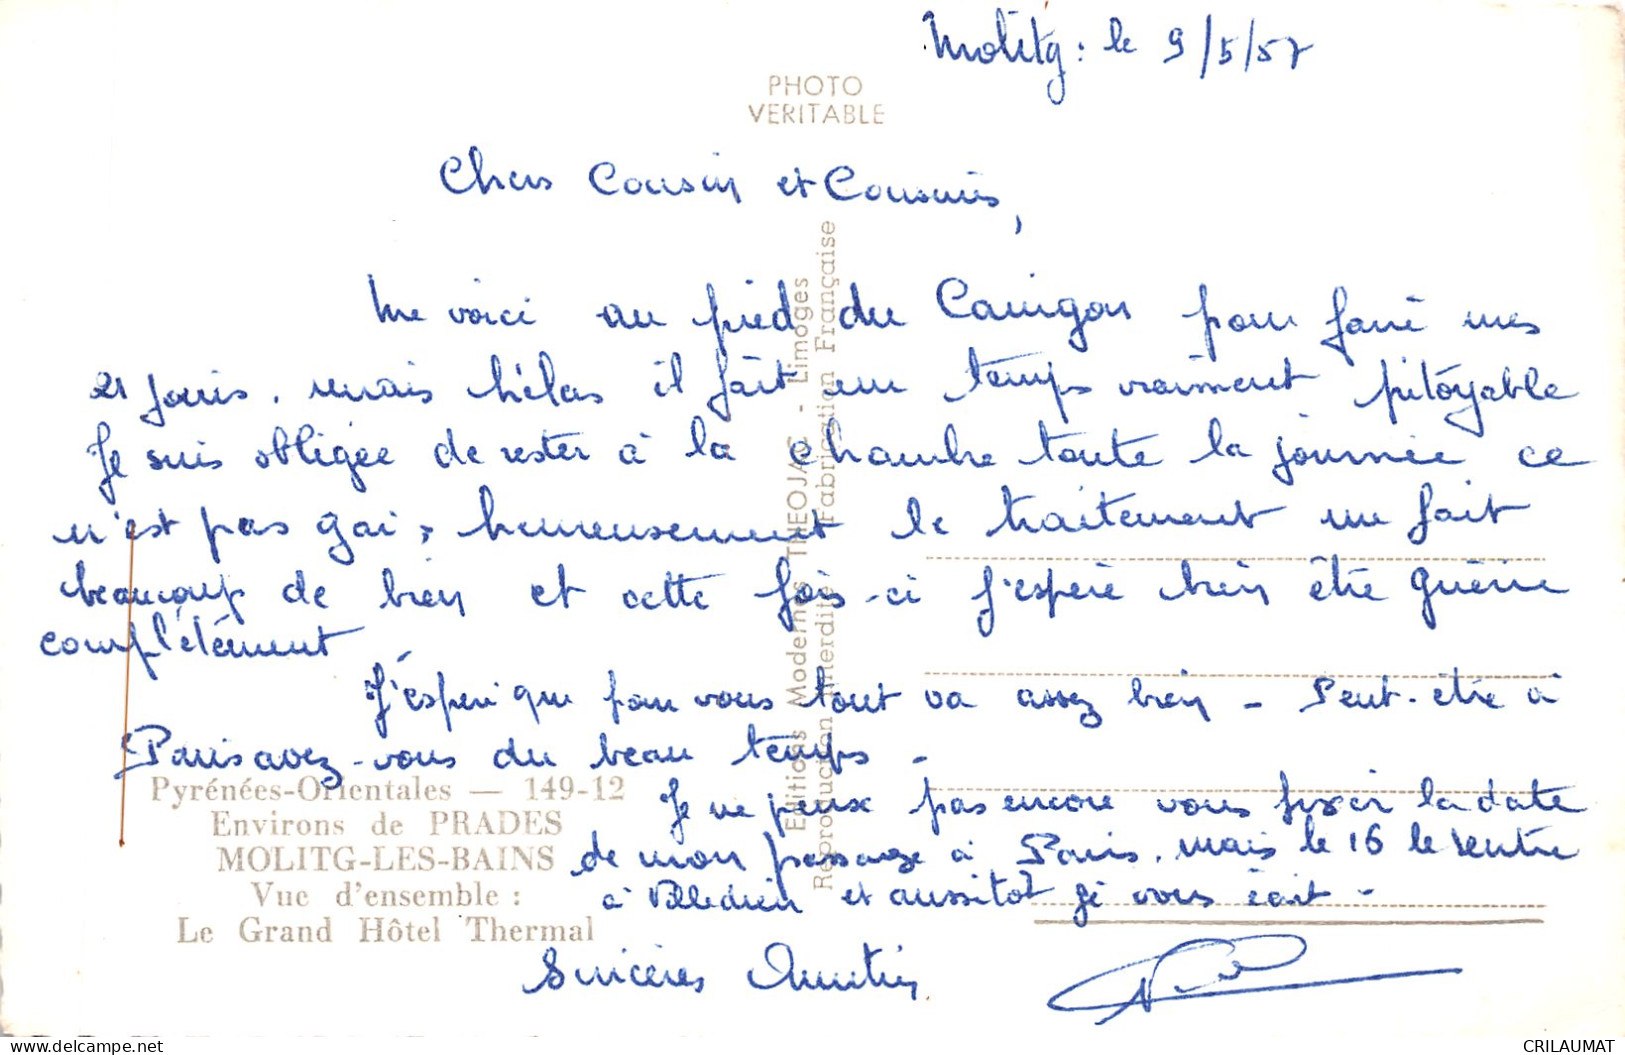 Molitg : le 9/5/57
PHOTO
VERITABLE
Chers Cousin et Cousines,
Me voici au pied du Canigou pour faire mes
21 jours, mais hélas il fait un temps vraiment pitoyable
Je suis obligée de rester à la chambre toute la journée ce
n'est pas gai, heureusement le traitement me fait
beaucoup de bien et cette fois-ci j'espère bien être guérie
complètement
J'espère que pour vous tout va assez bien - Peut-être à
Paris avez-vous du beau temps -
Je ne peux pas encore vous fixer la date
de mon passage à Paris, mais le 16 je rentre
à et aussitôt je vous écrit -
Sincères Amitiés
Pyrénées-Orientales — 149-12
Environs de PRADES
MOLITG-LES-BAINS
Vue d'ensemble :
Le Grand Hôtel Thermal
Editions Modernes THEOJAC - Limoges
Reproduction Interdite Fabrication Française
CRILAUMAT